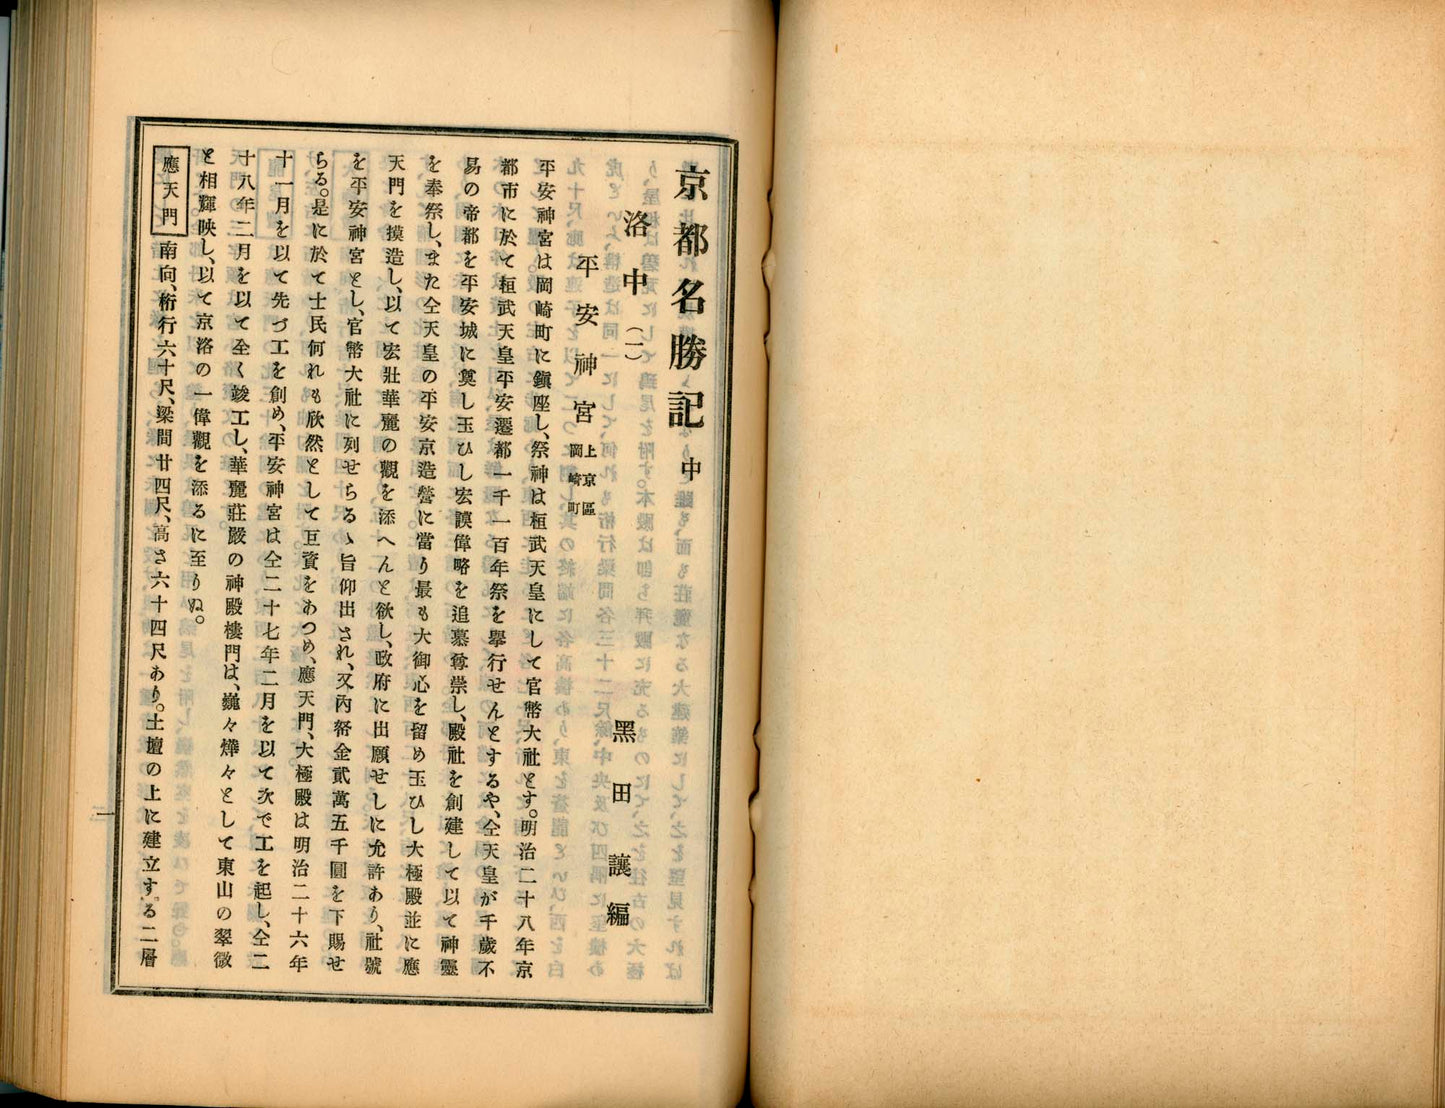 京都名勝記 中
洛中 (一)
黑田讓編
平安神宮 上京區 岡崎町
平安神宮は岡崎町に鎭座し、祭神は桓武天皇にして官幣大社とす。明治二十八年京
都市に於て桓武天皇平安遷都一千一百年祭を擧行せんとするや、仝天皇が千歲不
易の帝都を平安城に奠し玉ひし宏謨偉略を追慕尊崇し、殿社を創建して以て神靈
を奉祭し、また仝天皇の平安京造營に當り最も大御心を留め玉ひし大極殿並に應
天門を摸造し、以て宏壯華麗の觀を添へんと欲し、政府に出願せしに允許あり、社號
を平安神宮とし、官幣大社に列せらるゝ旨仰出され、又內帑金貳萬五千圓を下賜せ
らる。是に於て士民何れも欣然として巨資をあつめ、應天門、大極殿は明治二十六年
十一月を以て先づ工を創め、平安神宮は仝二十七年二月を以て次で工を起し、仝二
十八年二月を以て全く竣工し、華麗莊嚴の神殿樓門は、巍々燁々として東山の翠微
と相輝映し、以て京洛の一偉觀を添るに至りぬ。
應天門 南向、桁行六十尺、梁間廿四尺、高さ六十四尺あり。土壇の上に建立す。る二層
一